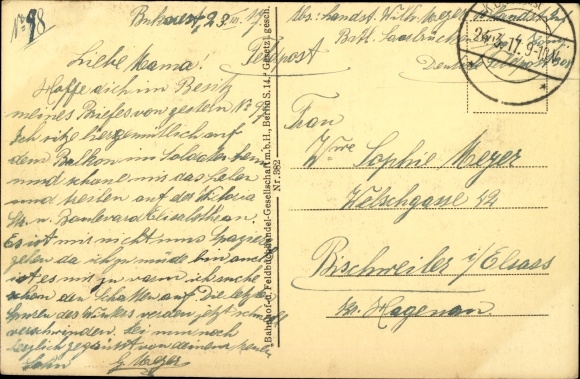 No 98
Bukarest, 23. III. 17.
Liebe Mama!
Hoffe dich im Besitz
meines Briefes von gestern No 97
Ich sitze hier gemütlich auf
dem Balkon im Soldatenheim
und schaue mir das Leben
und Treiben auf der Viktoria
Str. u. Boulevard Elisabetha an.
Es ist mir nicht ums Spazieren
gehen da ich zu müde bin auch
ist es mir zu warm ich suche
schon den Schatten auf. Die letzten
Spuren des Winters werden jetzt schnell
verschwinden. Sei nun noch
herzlich gegrüsst von deinem treuen
Sohn Meyer
Feldpost
Abs: Landst. Wilh. Meyer
Batl. Saarbrücken
Deutsche Feldpost
"Bahnhof-d. Feldbuchhandel-Gesellschaft m.b.H., Berlin S. 14." Gesetzl. gesch.
Nr. 982
Frau
Wwe Sophie Meyer
Welschgasse 12
Bischweiler i/Elsass
Kr. Hagenau.